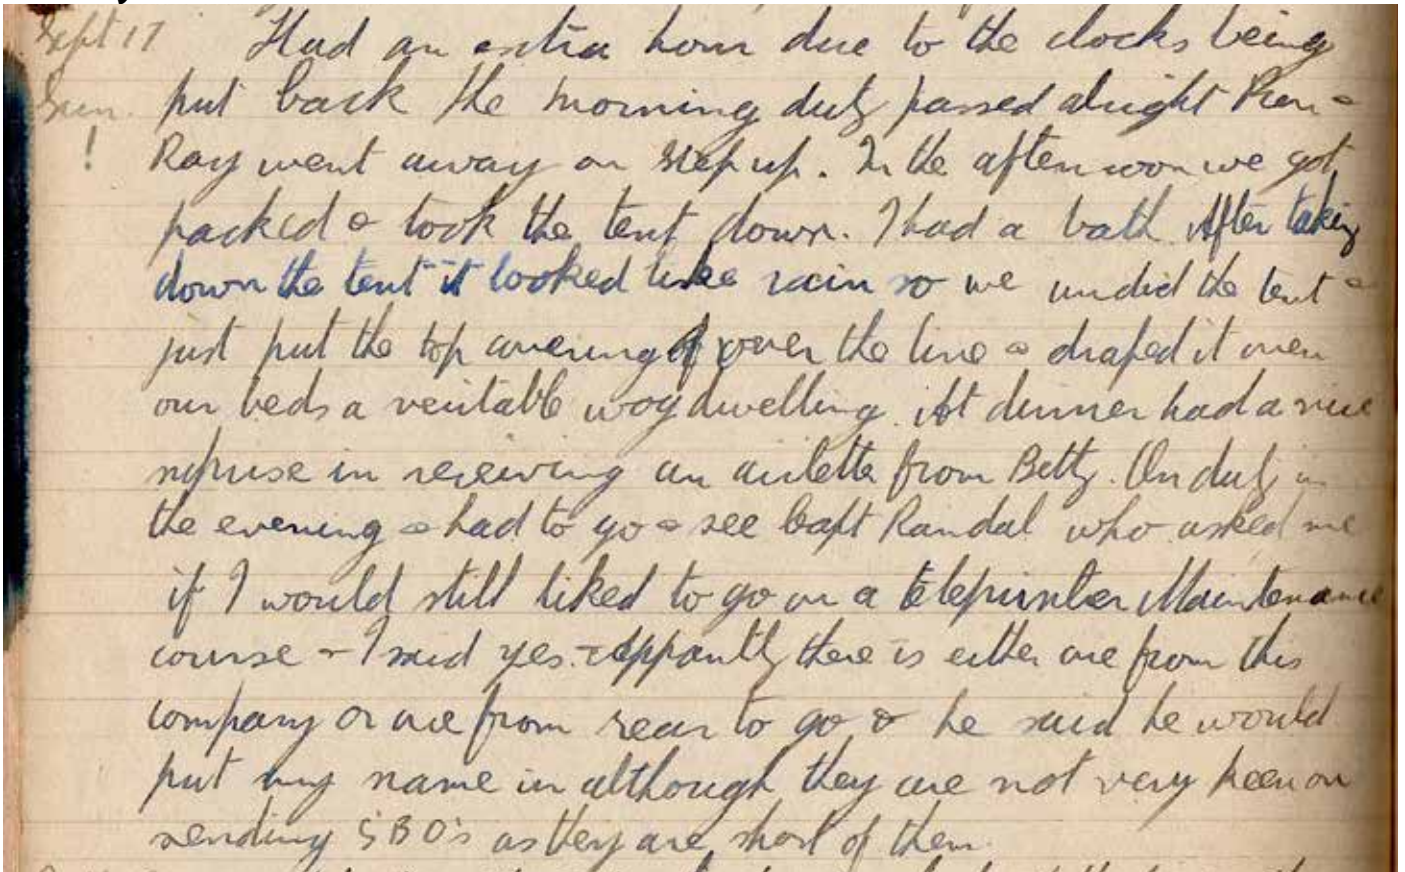 Sept 17 Had an extra hour due to the clocks being
Sun. put back the morning duty passed alright Ken &
! Ray went away on step up. In the afternoon we got
packed & took the tent down. I had a bath. After taking
down the tent it looked like rain so we undid the tent &
just put the top covering over the line & draped it over
our beds a veritable wog dwelling. At dinner had a nice
suprise in receiving an airletter from Betty. On duty in
the evening & had to go & see Capt Randal who asked me
if I would still liked to go on a teleprinter Maintenance
course - I said yes. Appantly there is either one from this
company or one from rear to go & he said he would
put my name in although they are not very keen on
sending SBO's as they are short of them.